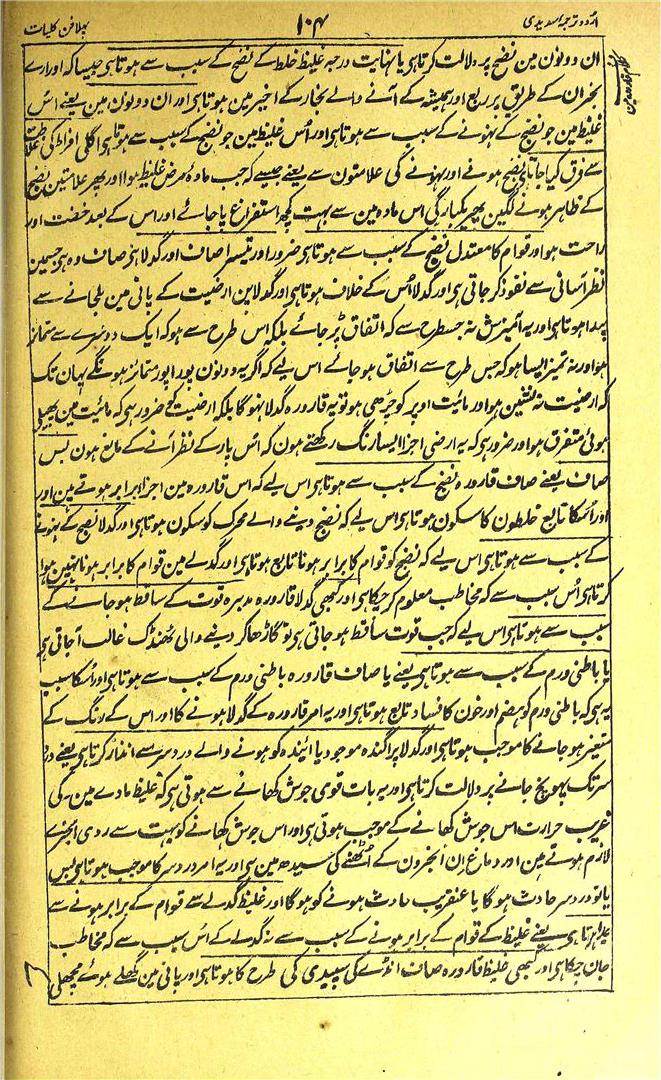 اُردو ترجمہ اسدیدی ۱۰۴ پہلا فن کلیات
ان دونون مین نضج پر دلالت کرتا ہی یا نہایت درجہ غلیظ خلط کے نضج کے سبب سے ہوتا ہی جیسا کہ اورارے
بحران کے طریق پر ربع اور ہمیشہ کے آنے والے بخار کے اخیر مین ہوتا ہی اور ان دونون مین یعنے اُس
غلیظ مین جو نضج کے نہونے کے سبب سے ہوتا ہی اور اُس غلیظ مین جو نضج کے سبب سے ہوتا ہی اگلی افراط کی
سے فرق کیا جاتا ہی نضج ہونے اور نہونے کی علامتون سے یعنے جیسے کہ جب مادۂ مرض غلیظ ہو اور پھر علامتین نضج
کے ظاہر ہونے لگین پھر یکبارگی اس مادہ مین سے بہت کچھ استفراغ پا جائے اور اس کے بعد خفت اور
راحت ہو اور قوام کا معتدل نضج کے سبب سے ہوتا ہی ضرور اور تیسرا صاف اور گدلا ہی صاف وہ ہی جسمین
نظر آسانی سے نفوذ کر جاتی ہی اور گدلا اُس کے خلاف ہوتا ہی اور گدلا پن ارضیت کے پانی مین ملجانے سے
پیدا ہوتا ہی اور یہ آمیزش نہ جسطرح سے کہ اتفاق پڑ جائے بلکہ اس طرح سے ہو کہ ایک دوسرے سے متمائز
ہو اور نہ تمیز ایسا ہو کہ جس طرح سے اتفاق ہو جائے اس لیے کہ اگر یہ دونون پورا پورا متمائز ہونگے یہان تک
کہ ارضیت نہ نشین ہو اور مائیت اوپر کو چڑھی ہو تو یہ قارورہ گدلا نہوگا بلکہ ارضیت کو ضرور ہی کہ مائیت مین پھیلی
ہوئی متفرق ہو اور ضرور ہی کہ یہ ارضی اجزا ایسا رنگ رکھتے ہون کہ اُس پار کے نظر آنے کے مانع ہون بس
صاف یعنے صاف قارورہ نضج کے سبب سے ہوتا ہی اس لیے کہ اس قارورہ مین اجزا برابر ہوتے ہین اور
اور اسکا تابع خلطون کا سکون ہوتا ہی اس لیے کہ نضج دینے والے محرک کو سکون ہوتا ہی اور گدلا نضج کے نہونے
کے سبب سے ہوتا ہی اس لیے کہ نضج کو قوام کا برابر ہونا تابع ہوتا ہی اور گدلے مین قوام کا برابر ہونا نہین ہوا
کرتا ہی اُس سبب سے کہ مخاطب معلوم کر چکا ہی اور کبھی گدلا قارورہ مدبرہ قوت کے ساقط ہو جانے کے
سبب سے ہوتا ہی اس لیے کہ جب قوت ساقط ہو جاتی ہی تو گاڑھا کر دینے والی ٹھنڈک غالب آ جاتی ہی
یا باطنی ورم کے سبب سے ہوتا ہی یعنے یا صاف قارورہ باطنی ورم کے سبب سے ہوتا ہی اور اُسکا سبب
یہ ہی کہ باطنی ورم کو ہضم اور خون کا فساد تابع ہوتا ہی اور یہ امر قارورہ کے گدلا ہونے کا اور اس کے رنگ کے
متغیر ہو جانے کا موجب ہوتا ہی اور گدلا پراگندہ موجود یا آئندہ کو ہونے والے درد سر سے انذار کرتا ہی یعنے درد
سر تک پہونچ جانے پر دلالت کرتا ہی اور یہ بات قوی جوش کھانے سے ہوتی ہی کہ غلیظ مادے مین ۔کی
غریب حرارت اس جوش کھانے کے موجب ہوتی ہی اور اس جوش کھانے کو بہت سے ردی ابخرے
لازم ہوتے ہین اور دماغ ان ابخرون کے اُٹھنے کی سیدھ مین ہی اور یہ امر درد سر کا موجب ہوتا ہی پس
یا تو درد سر حادث ہوگا یا عنقریب حادث ہونے کو ہوگا اور غلیظ گدلے سے قوام کے برابر ہونے سے
علٰحدہ ہوتا ہی یعنے غلیظ کے قوام کے برابر ہونے کے سبب سے نہ گدلے کے اُس سبب سے کہ مخاطب
جان چکا ہی اور کبھی غلیظ قارورہ صاف انڈے کی سپیدی کی طرح کا ہوتا ہی اور پانی مین گھلے ہوئے مچھلی